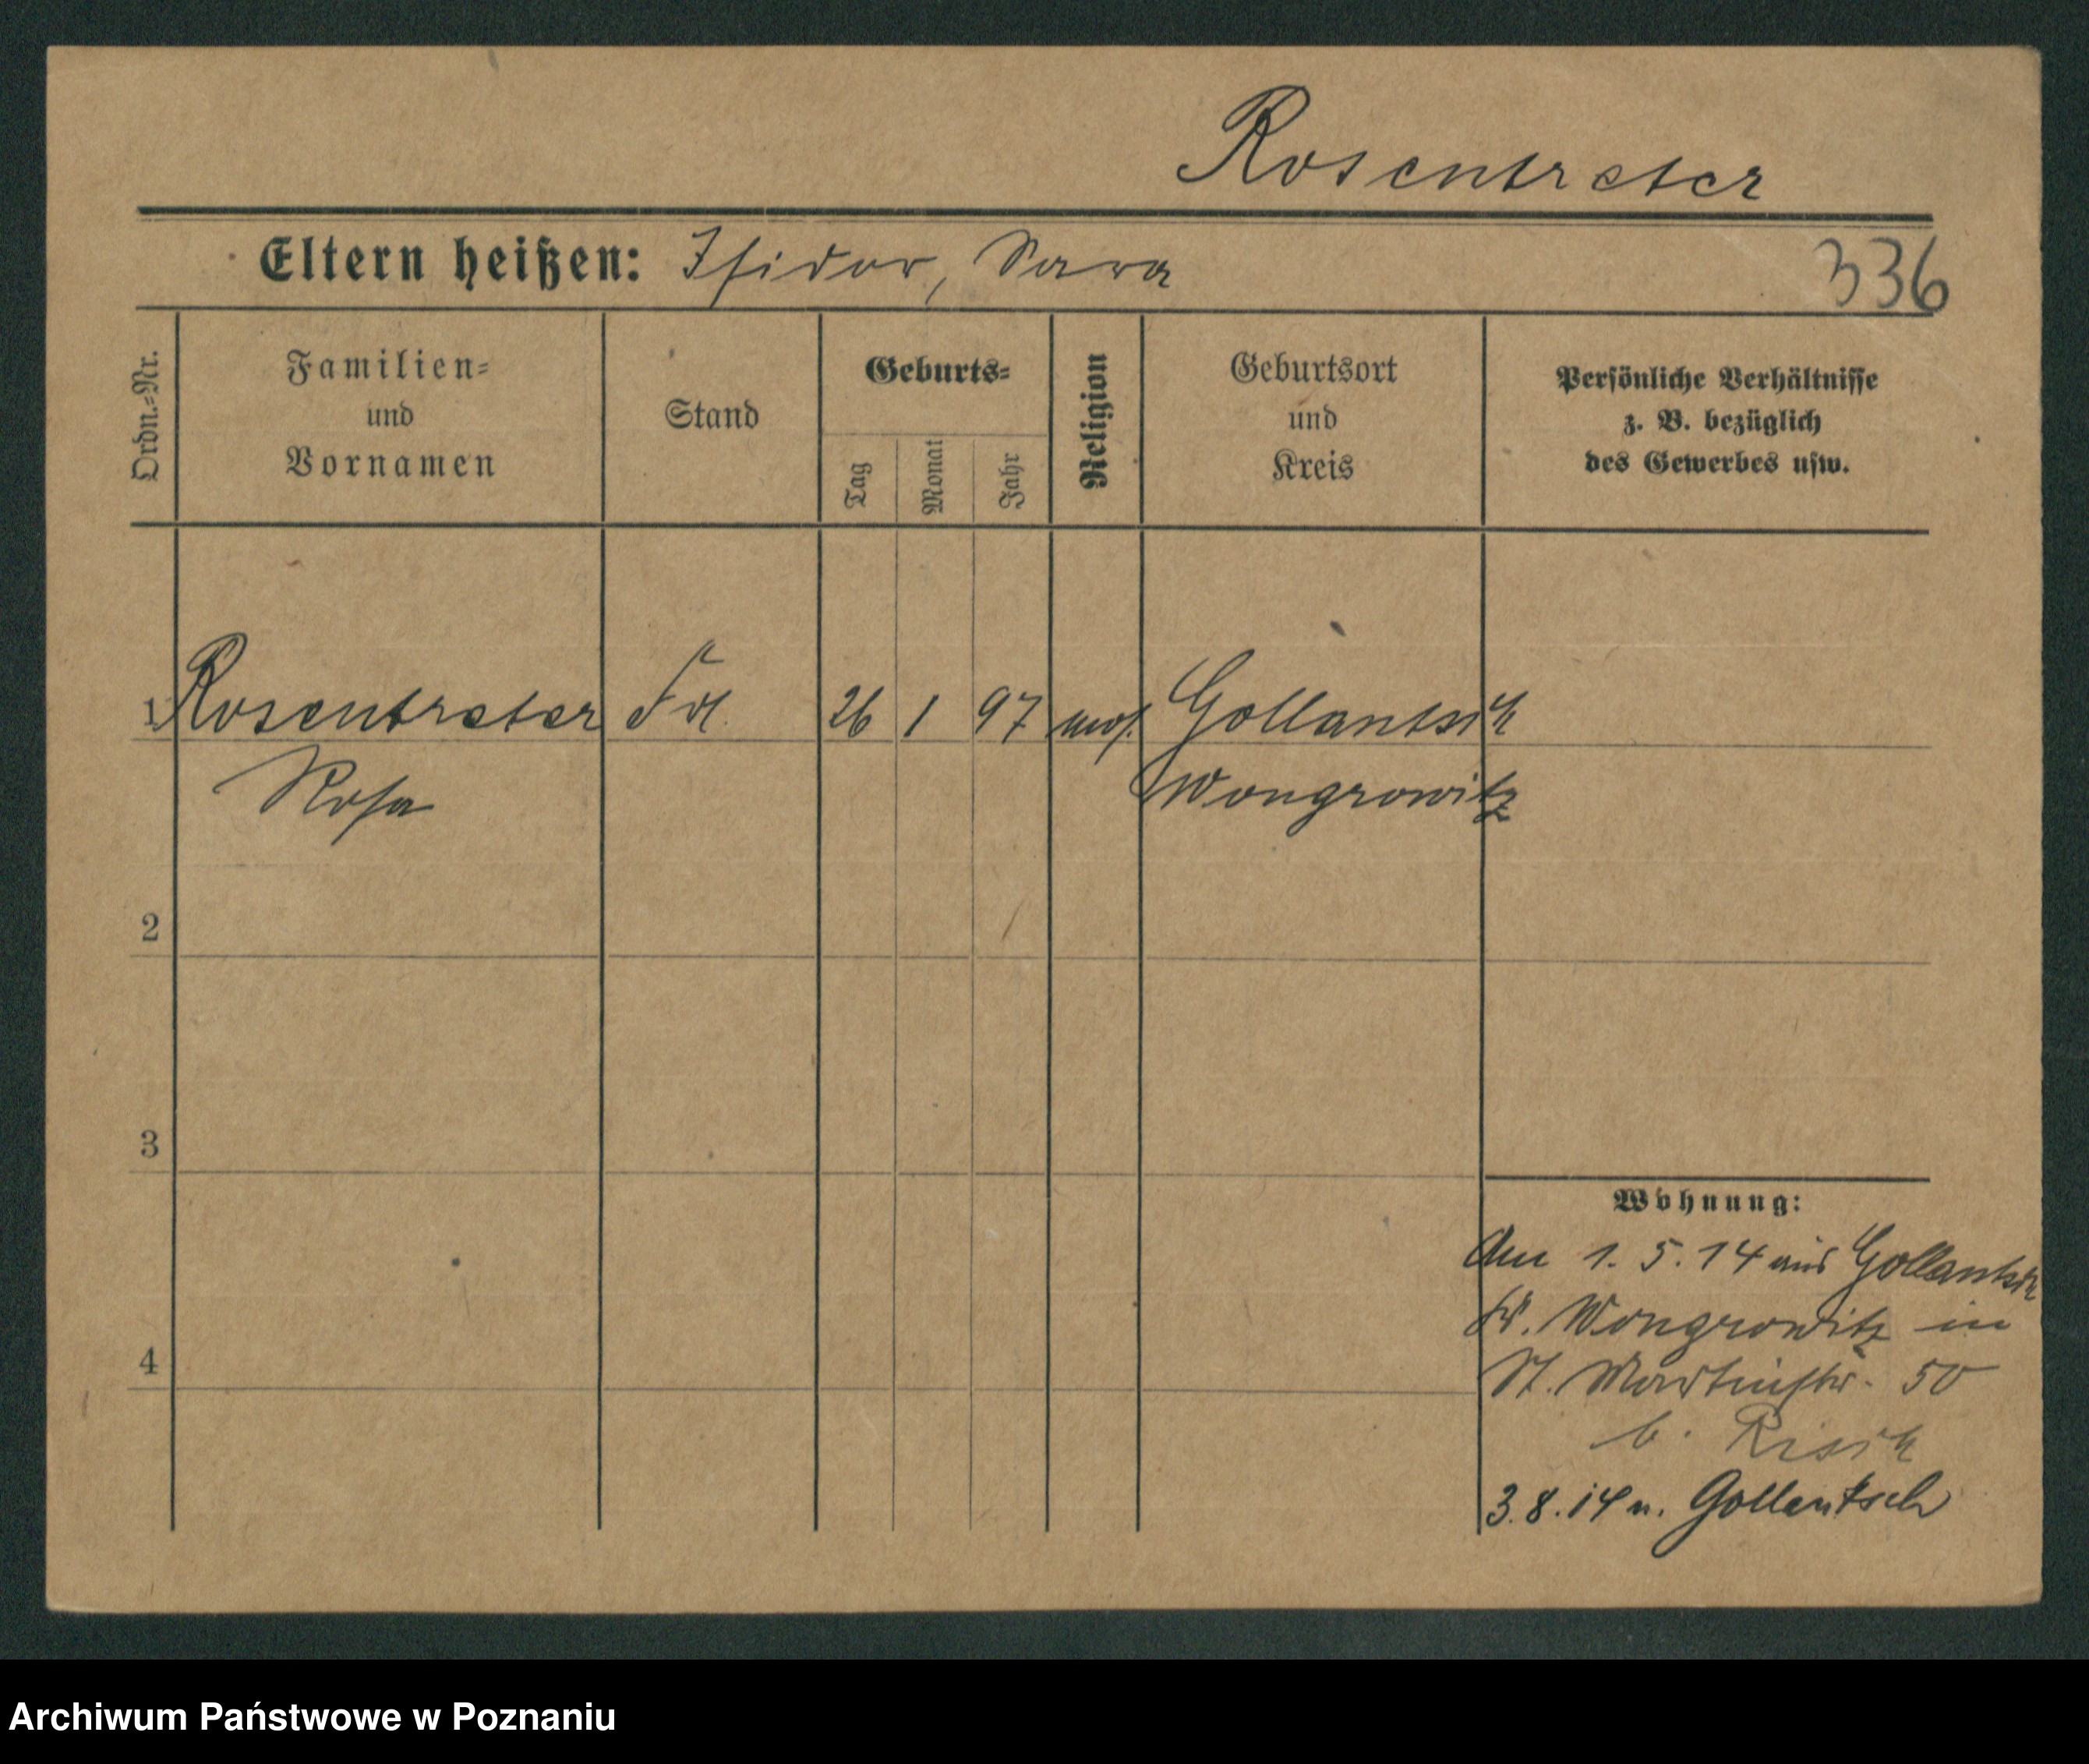 Rosentreter
Eltern heißen: Isidor, Sara
336
Ordn.-Nr.
Familien-
und
Vornamen
Stand
Geburts-
Tag
Monat
Jahr
Religion
Geburtsort
und
Kreis
Persönliche Verhältnisse
z. B. bezüglich
des Gewerbes usw.
1 Rosentreter Frl. 26 1 97 mos. Gollantsch
Rosa Wongrowitz
2
3
4
Wohnung:
Am 1.5.14 aus Gollantsch
Kr. Wongrowitz in
St. Martinstr. 50
b. Risch
3.8.14 n. Gollantsch
Archiwum Państwowe w Poznaniu